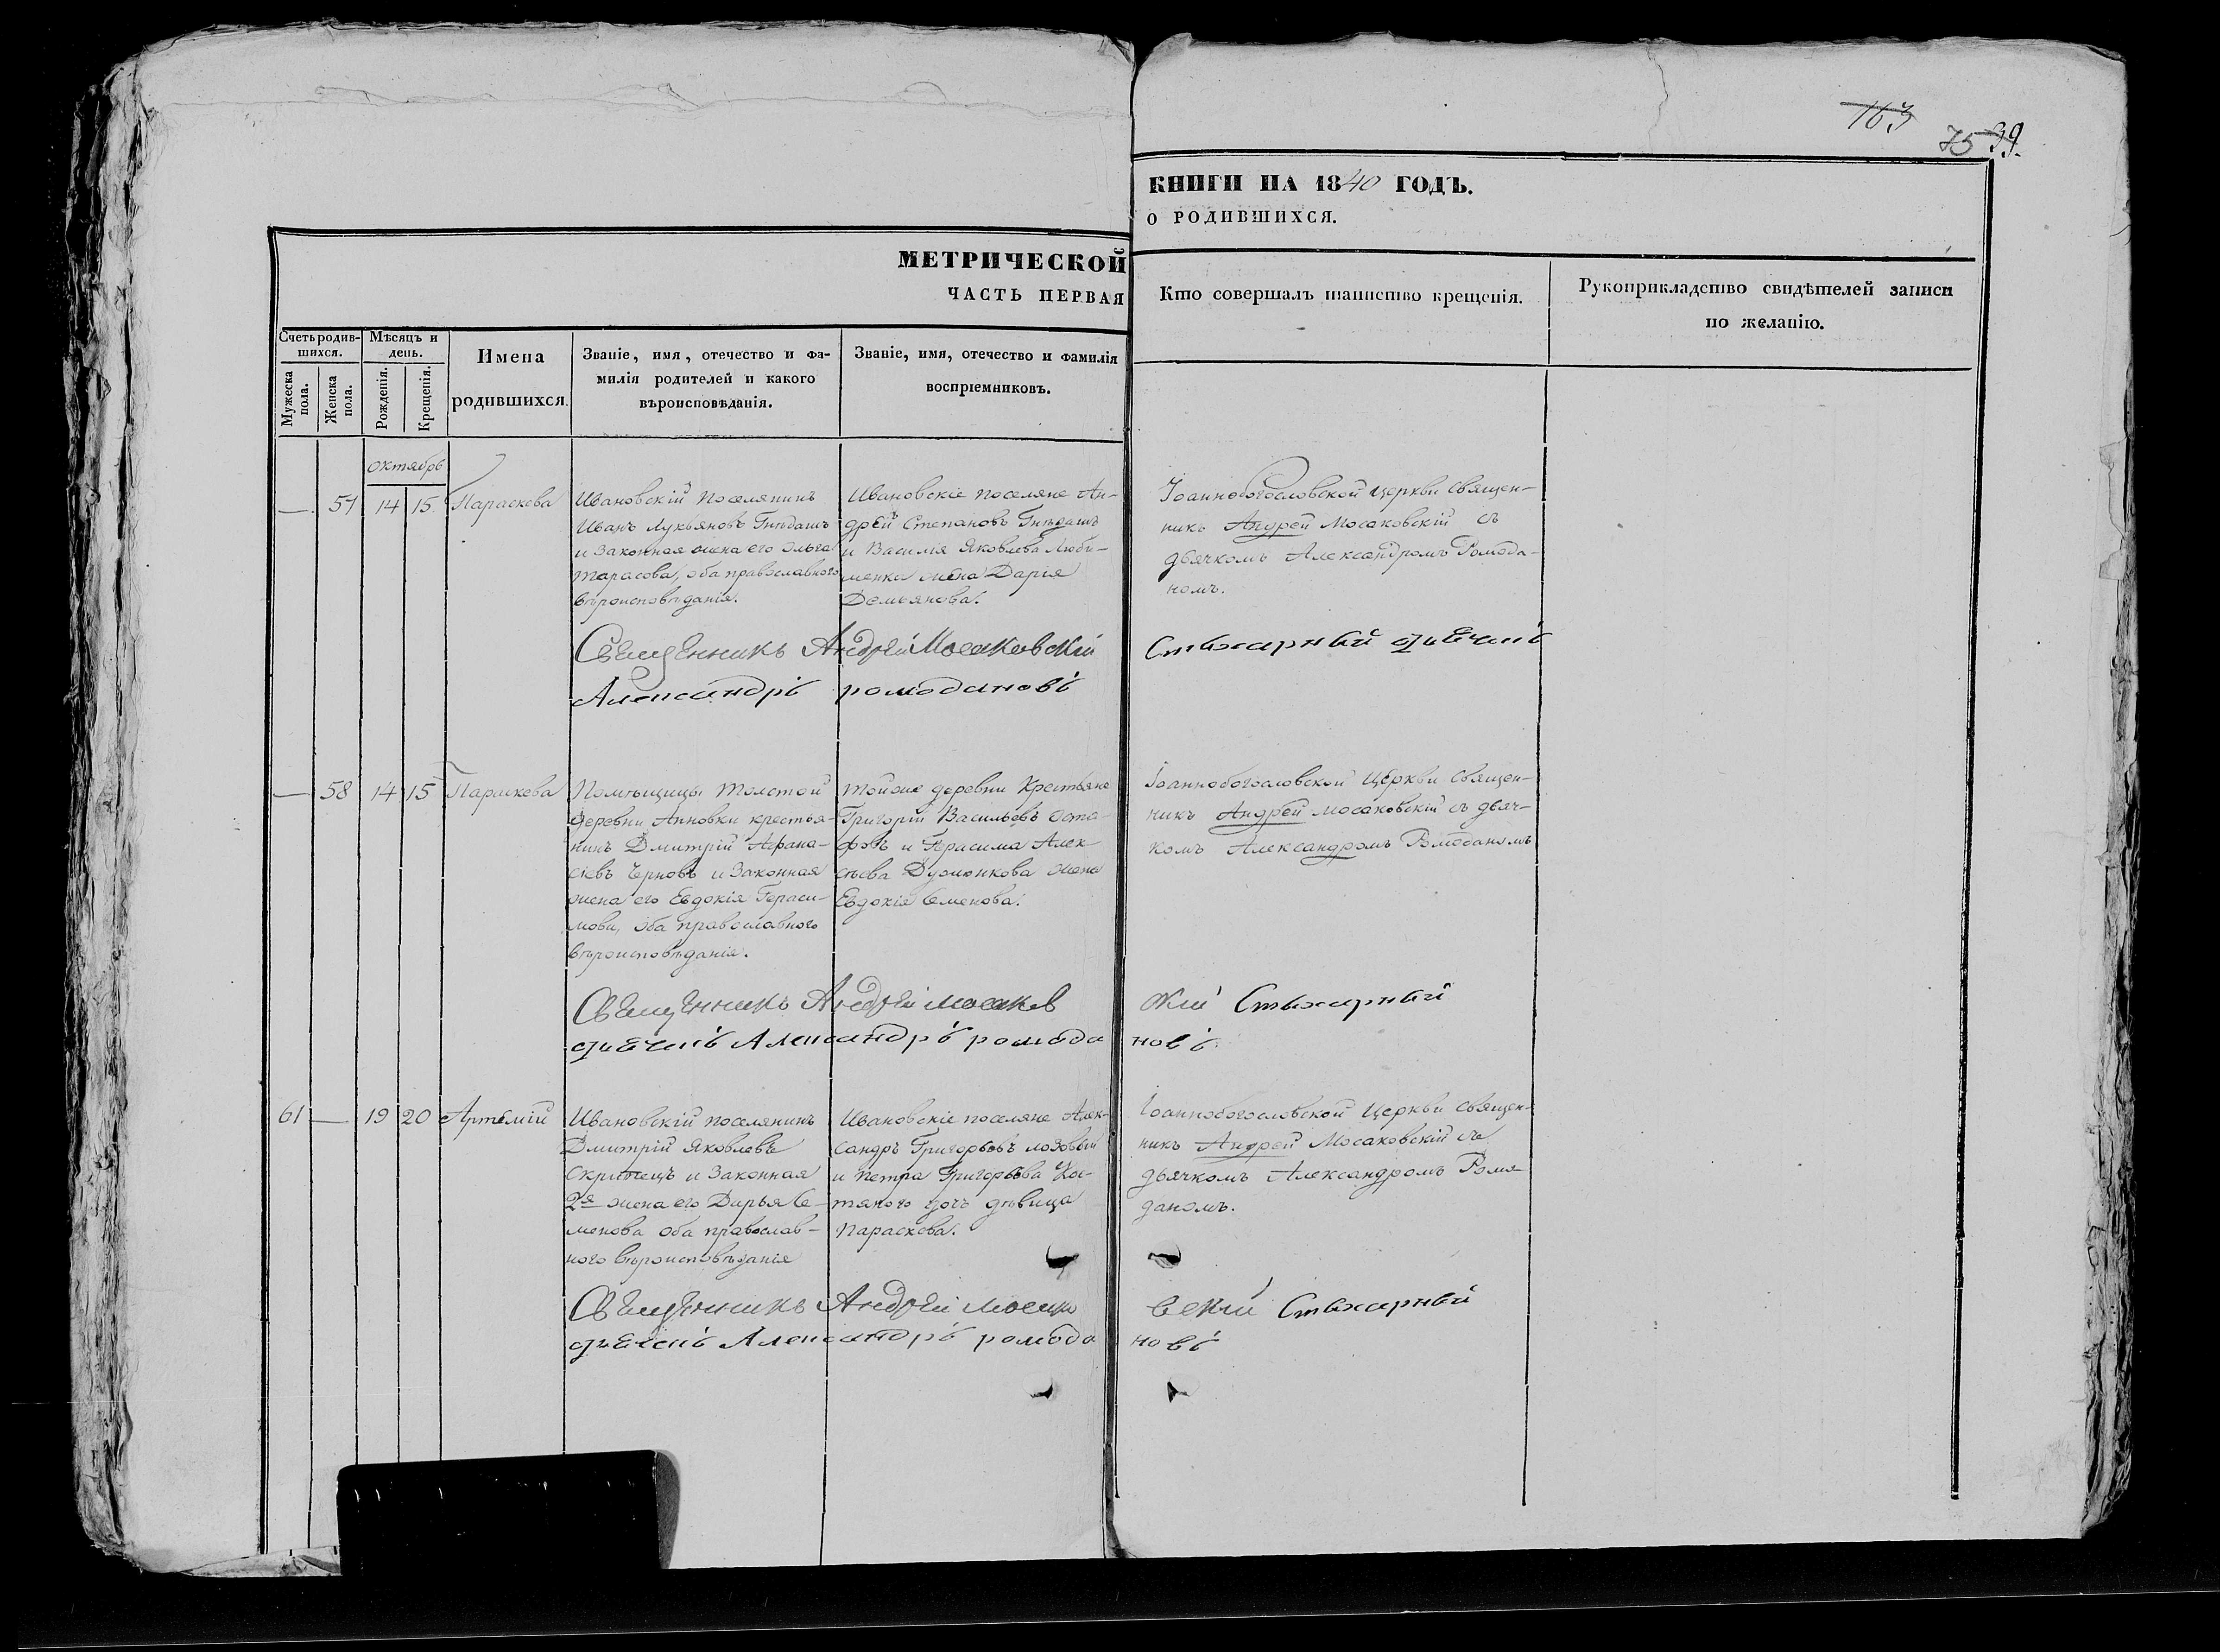 163
75 39.
КНИГИ НА 1840 ГОДЪ.
О РОДИВШИХСЯ.
МЕТРИЧЕСКОЙ
ЧАСТЬ ПЕРВАЯ
Счетъ родив-
шихся.
Мужеска
пола.
Женска
пола.
Мѣсяцъ и
день.
Рожденія.
Крещенія.
Имена
родившихся.
Званіе, имя, отечество и фа-
милія родителей и какого
вѣроисповѣданія.
Званіе, имя, отечество и фамилія
воспріемниковъ.
Кто совершалъ таинство крещенія.
Рукоприкладство свидѣтелей записи
по желанію.
октябрь
— 57 14 15 Параскева
Ивановскій поселянинъ
Иванъ Лукьяновъ Гнѣдашъ
и законная жена его Ольга
Тарасова, оба православнаго
вѣроисповѣданія.
Ивановскіе поселяне Ан-
дрей Степановъ Гнѣдашъ
и Василія Яковлева Люби-
менка жена Дарія
Демьянова.
Іоаннобогословской церкви священ-
никъ Андрей Мосаковскій съ
дьячкомъ Александромъ Ромода-
номъ.
Священникъ Андрей Мосаковскій Стихарный дьячекъ
Александръ ромодановъ
— 58 14 15 Параскева
Помѣщицы Толстой
деревни Анновки крестья-
нинъ Дмитрій Афана-
сіевъ Черновъ и законная
жена его Евдокія Гераси-
мова, оба православного
вѣроисповѣданія.
Тойже деревни крестьяне
Григорій Васильевъ Оста-
фовъ и Герасима Алек
сѣева жена
Евдокія Семенова.
Іоаннобогословской Церкви священ-
никъ Андрей Мосаковскій съ дьяч-
комъ Александромъ Ромоданомъ
Священникъ Андрей Мосаков скій Стихарный
дьячекъ Александръ ромода новъ
61 — 19 20 Артемій
Ивановскій поселянинъ
Дмитрій Яковлевъ
Скрипецъ и законная
2я жена его Дарья Се-
менова оба православ-
ного вѣроисповѣданія
Ивановскіе поселяне Алек-
сандръ Григорьевъ Лозовый
и Петра Григорьева Ко-
тяного дочь дѣвица
Параскева.
Іоаннобогословской Церкви священ-
никъ Андрей Мосаковскій съ
дьячкомъ Александромъ Ромо
даномъ.
Священникъ Андрей Мосако вскій Стихарный
дьячекъ Александръ ромода новъ